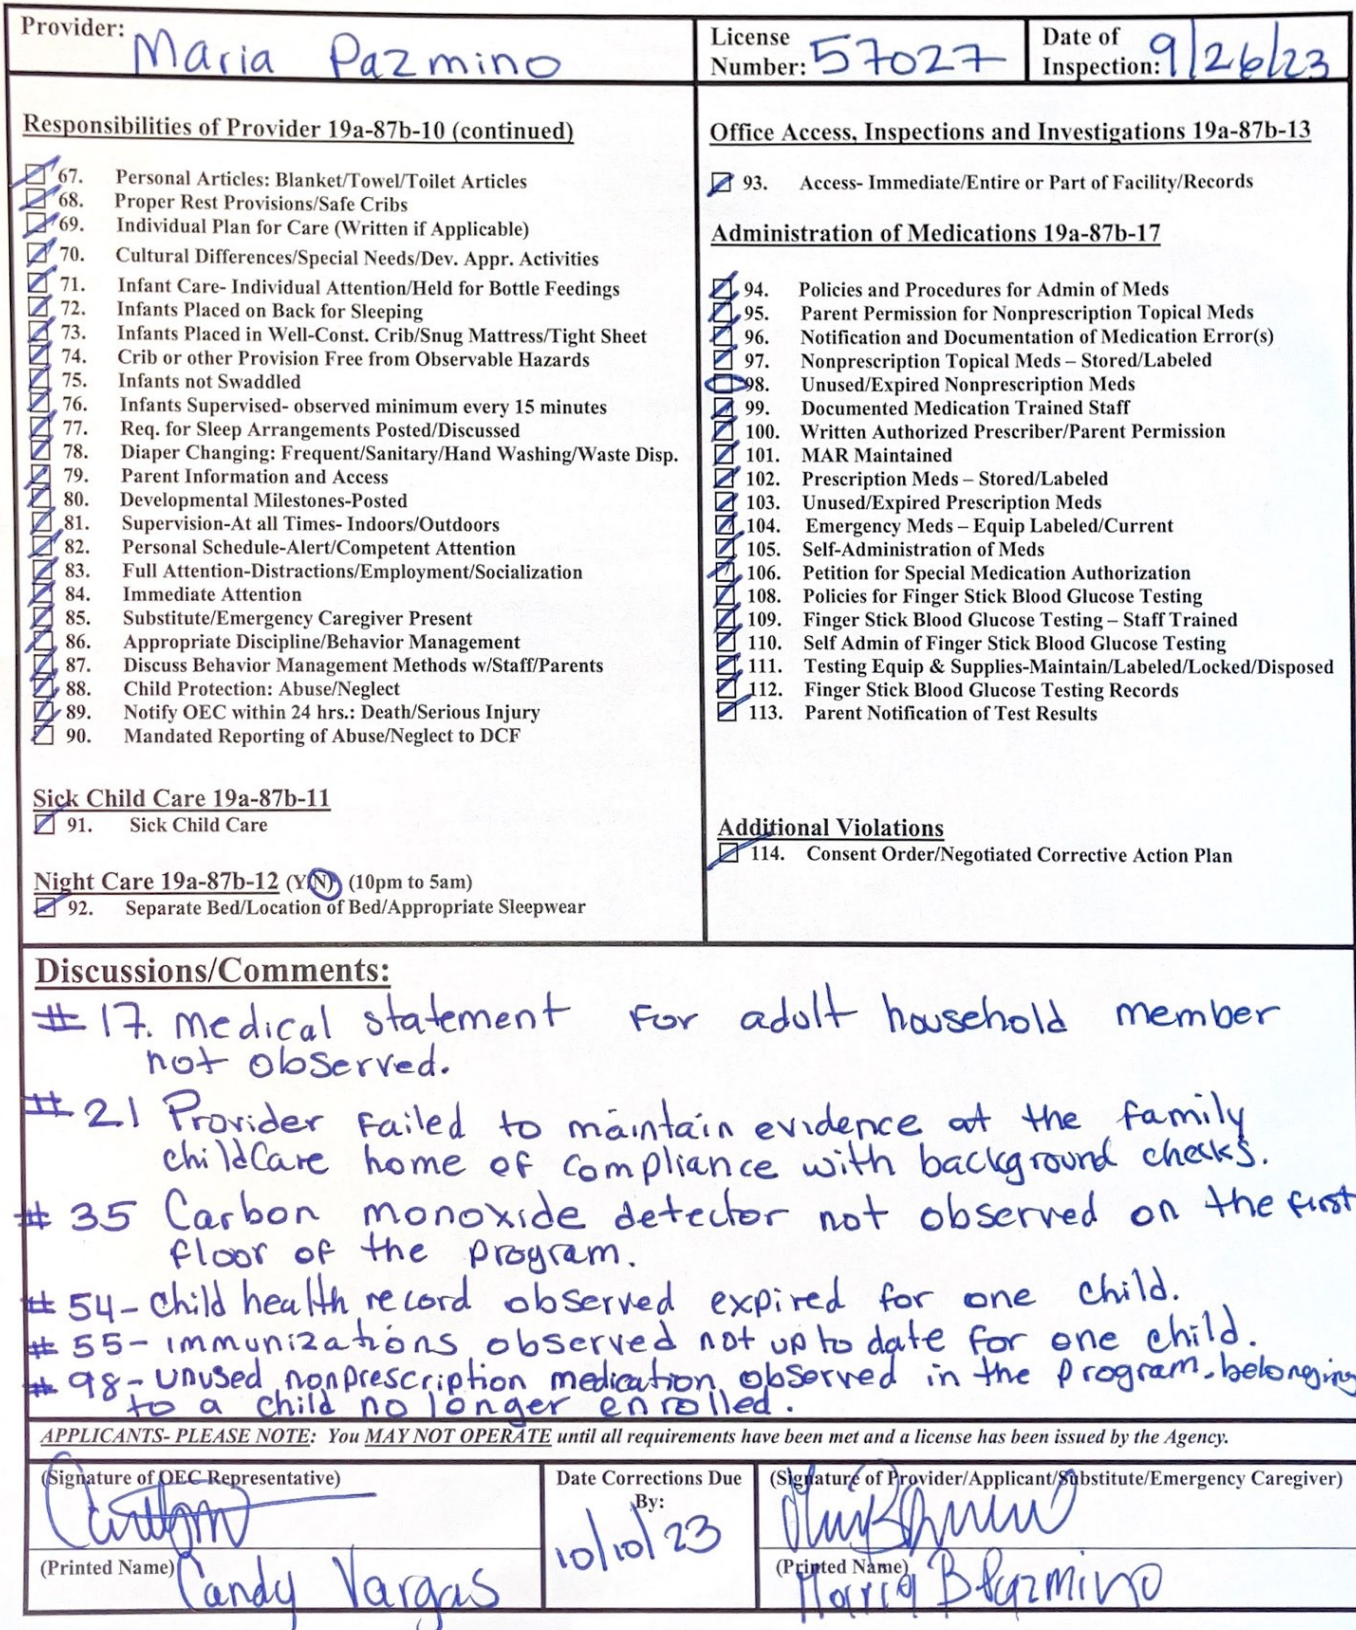 Provider: Maria Pazmino
License Number: 57027
Date of Inspection: 9/26/23
Responsibilities of Provider 19a-87b-10 (continued)
67. Personal Articles: Blanket/Towel/Toilet Articles
68. Proper Rest Provisions/Safe Cribs
69. Individual Plan for Care (Written if Applicable)
70. Cultural Differences/Special Needs/Dev. Appr. Activities
71. Infant Care- Individual Attention/Held for Bottle Feedings
72. Infants Placed on Back for Sleeping
73. Infants Placed in Well-Const. Crib/Snug Mattress/Tight Sheet
74. Crib or other Provision Free from Observable Hazards
75. Infants not Swaddled
76. Infants Supervised- observed minimum every 15 minutes
77. Req. for Sleep Arrangements Posted/Discussed
78. Diaper Changing: Frequent/Sanitary/Hand Washing/Waste Disp.
79. Parent Information and Access
80. Developmental Milestones-Posted
81. Supervision-At all Times- Indoors/Outdoors
82. Personal Schedule-Alert/Competent Attention
83. Full Attention-Distractions/Employment/Socialization
84. Immediate Attention
85. Substitute/Emergency Caregiver Present
86. Appropriate Discipline/Behavior Management
87. Discuss Behavior Management Methods w/Staff/Parents
88. Child Protection: Abuse/Neglect
89. Notify OEC within 24 hrs.: Death/Serious Injury
90. Mandated Reporting of Abuse/Neglect to DCF
Sick Child Care 19a-87b-11
91. Sick Child Care
Night Care 19a-87b-12 (Y/N) (10pm to 5am)
92. Separate Bed/Location of Bed/Appropriate Sleepwear
Office Access, Inspections and Investigations 19a-87b-13
93. Access- Immediate/Entire or Part of Facility/Records
Administration of Medications 19a-87b-17
94. Policies and Procedures for Admin of Meds
95. Parent Permission for Nonprescription Topical Meds
96. Notification and Documentation of Medication Error(s)
97. Nonprescription Topical Meds – Stored/Labeled
98. Unused/Expired Nonprescription Meds
99. Documented Medication Trained Staff
100. Written Authorized Prescriber/Parent Permission
101. MAR Maintained
102. Prescription Meds – Stored/Labeled
103. Unused/Expired Prescription Meds
104. Emergency Meds – Equip Labeled/Current
105. Self-Administration of Meds
106. Petition for Special Medication Authorization
108. Policies for Finger Stick Blood Glucose Testing
109. Finger Stick Blood Glucose Testing – Staff Trained
110. Self Admin of Finger Stick Blood Glucose Testing
111. Testing Equip & Supplies-Maintain/Labeled/Locked/Disposed
112. Finger Stick Blood Glucose Testing Records
113. Parent Notification of Test Results
Additional Violations
114. Consent Order/Negotiated Corrective Action Plan
Discussions/Comments:
# 17. medical statement for adult household member
not observed.
# 21 Provider failed to maintain evidence at the family
childCare home of compliance with background checks.
# 35 Carbon monoxide detector not observed on the first
floor of the program.
# 54- Child health record observed expired for one child.
# 55- immunizations observed not up to date for one child.
# 98- unused nonprescription medication observed in the program, belonging
to a child no longer enrolled.
APPLICANTS- PLEASE NOTE: You MAY NOT OPERATE until all requirements have been met and a license has been issued by the Agency.
(Signature of OEC Representative)
(Printed Name) Candy Vargas
Date Corrections Due
By:
10/10/23
(Signature of Provider/Applicant/Substitute/Emergency Caregiver)
(Printed Name) Maria B Pazmino